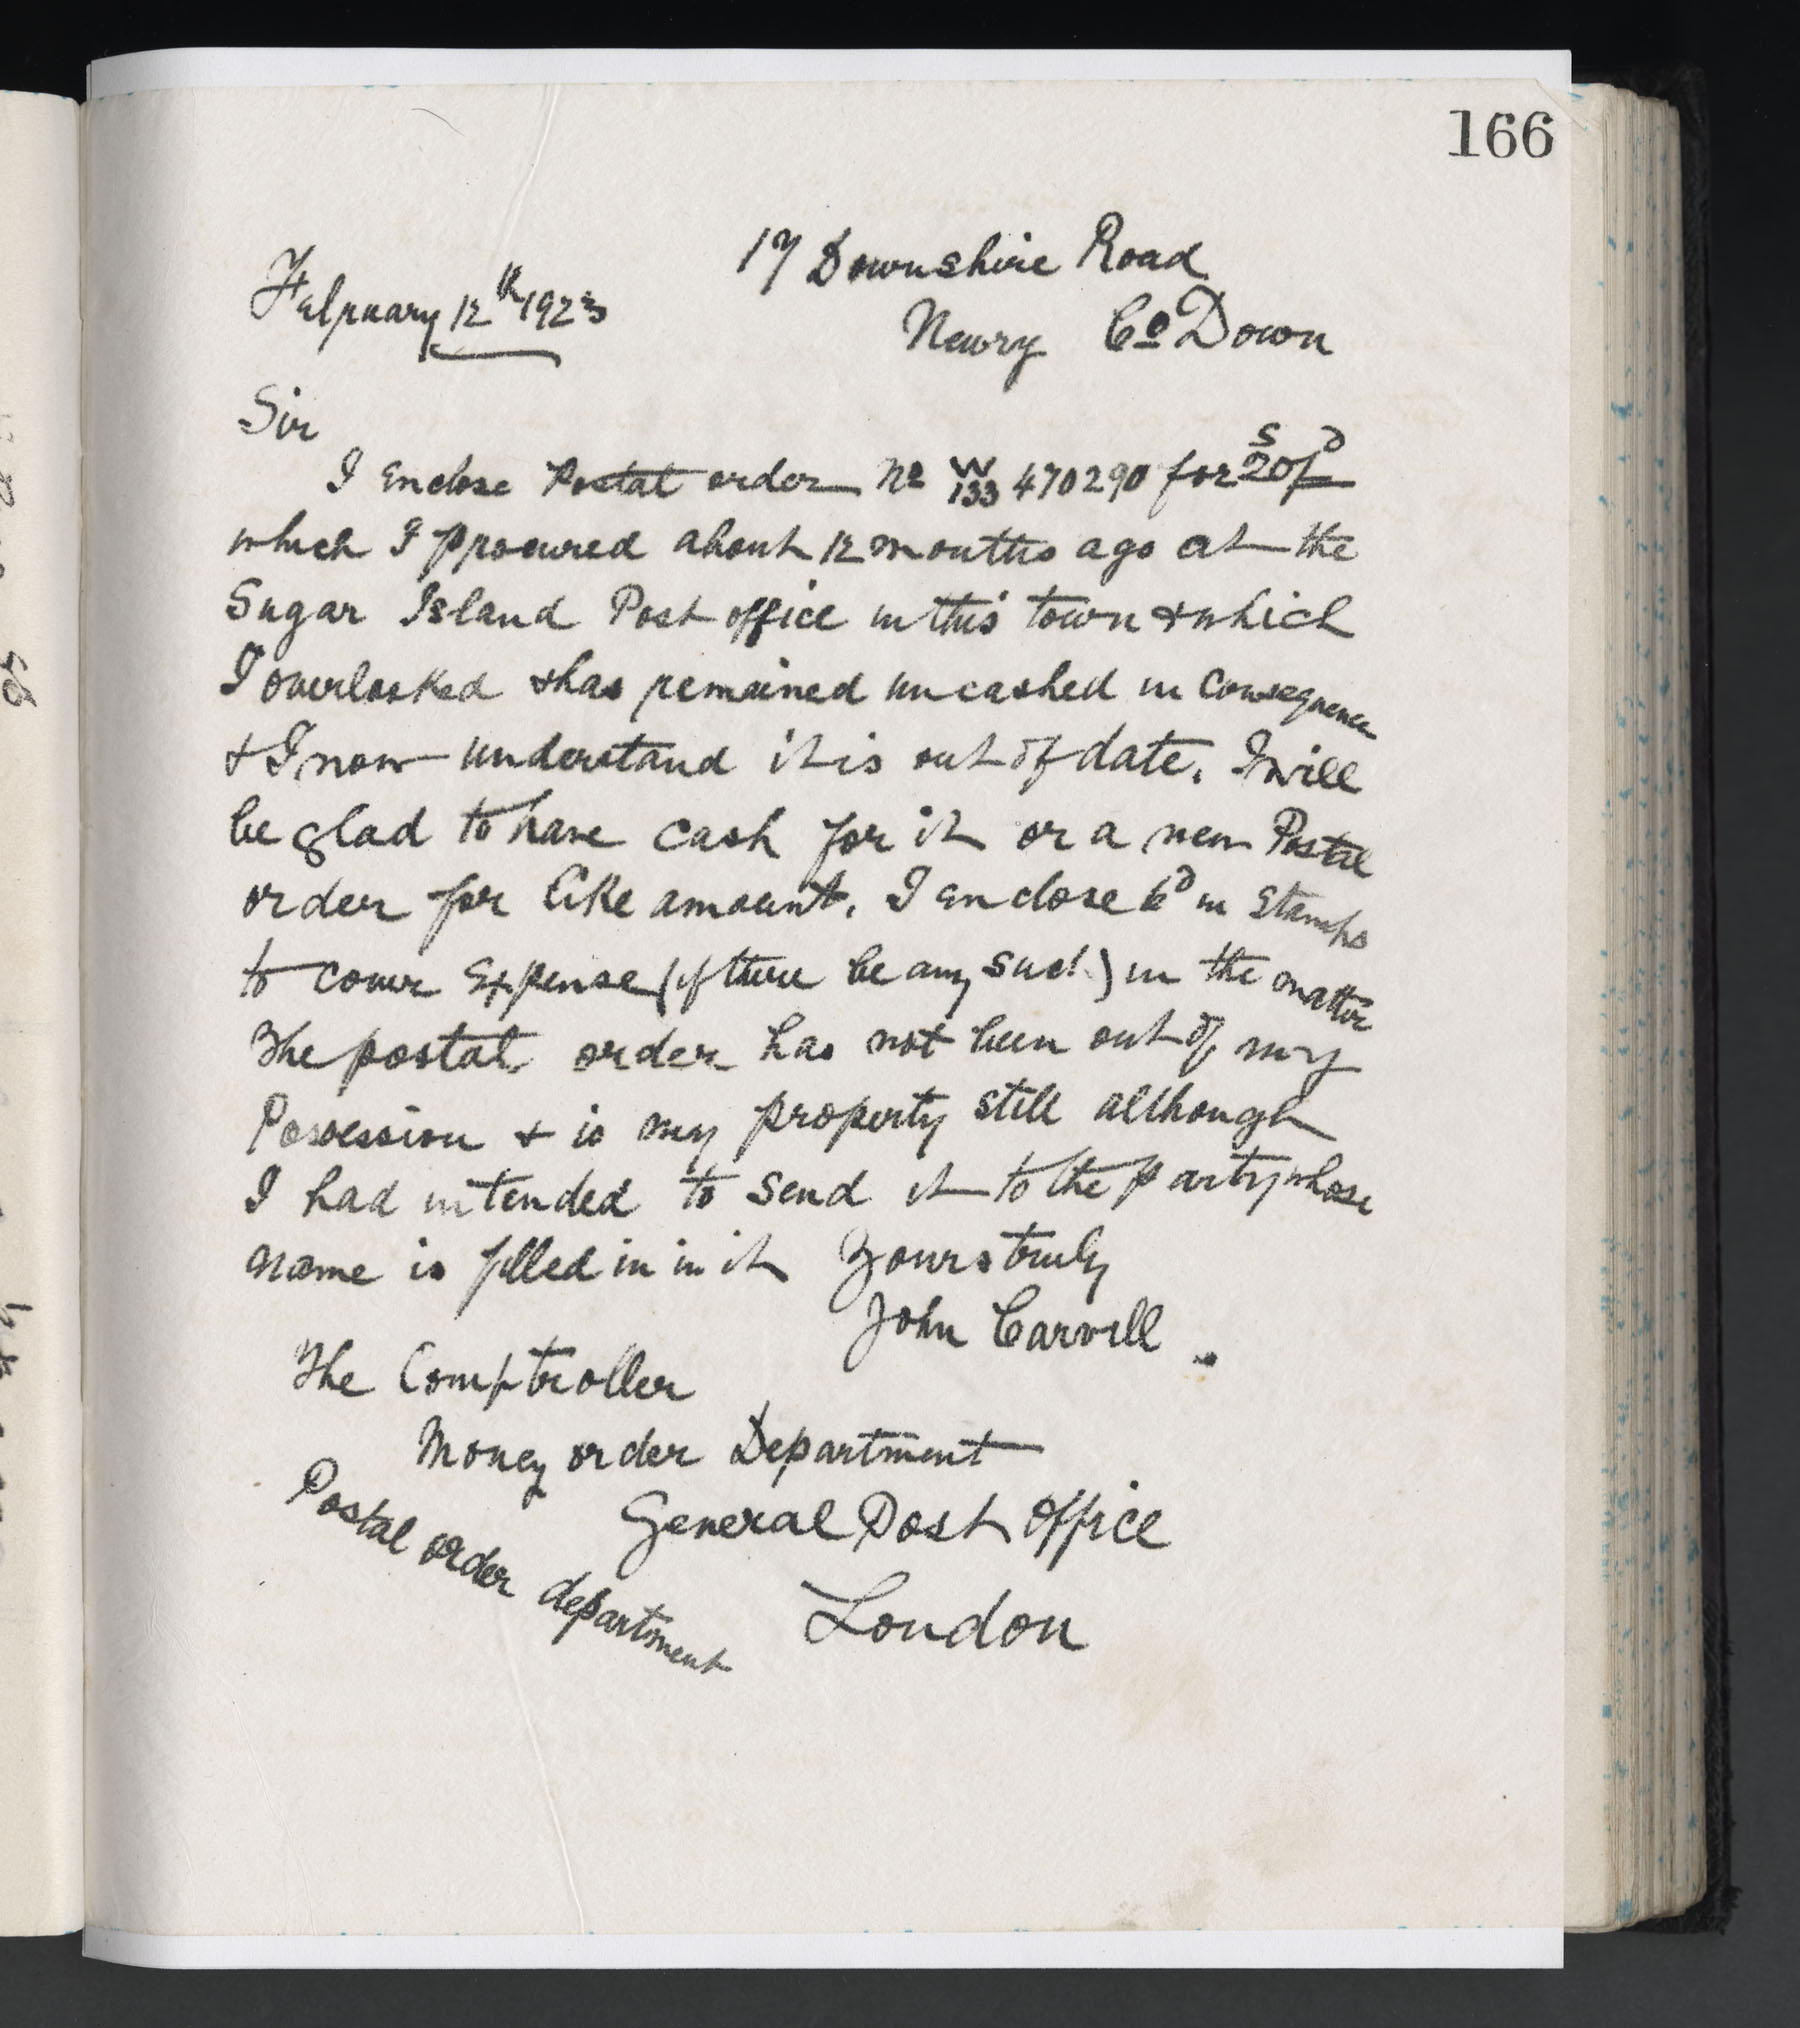 166
17 Downshire Road
February 12th 1923
Newry Co Down
Sir
I enclose Postal order No W/133 470290 for 20s/d
which I procured about 12 months ago at the
Sugar Island Post office in this town & which
I overlooked & has remained uncashed in consequence
& I now understand it is out of date. I will
be glad to have cash for it or a new Postal
order for like amount. I enclose 6d in stamps
to cover expense (if there be any such) in the matter
The postal order has not been out of my
Possession & is my property still although
I had intended to send it to the party whose
name is filled in in it Yours truly
John Carvill.
The Comptroller
Money order Department
General Post office
London
Postal order department